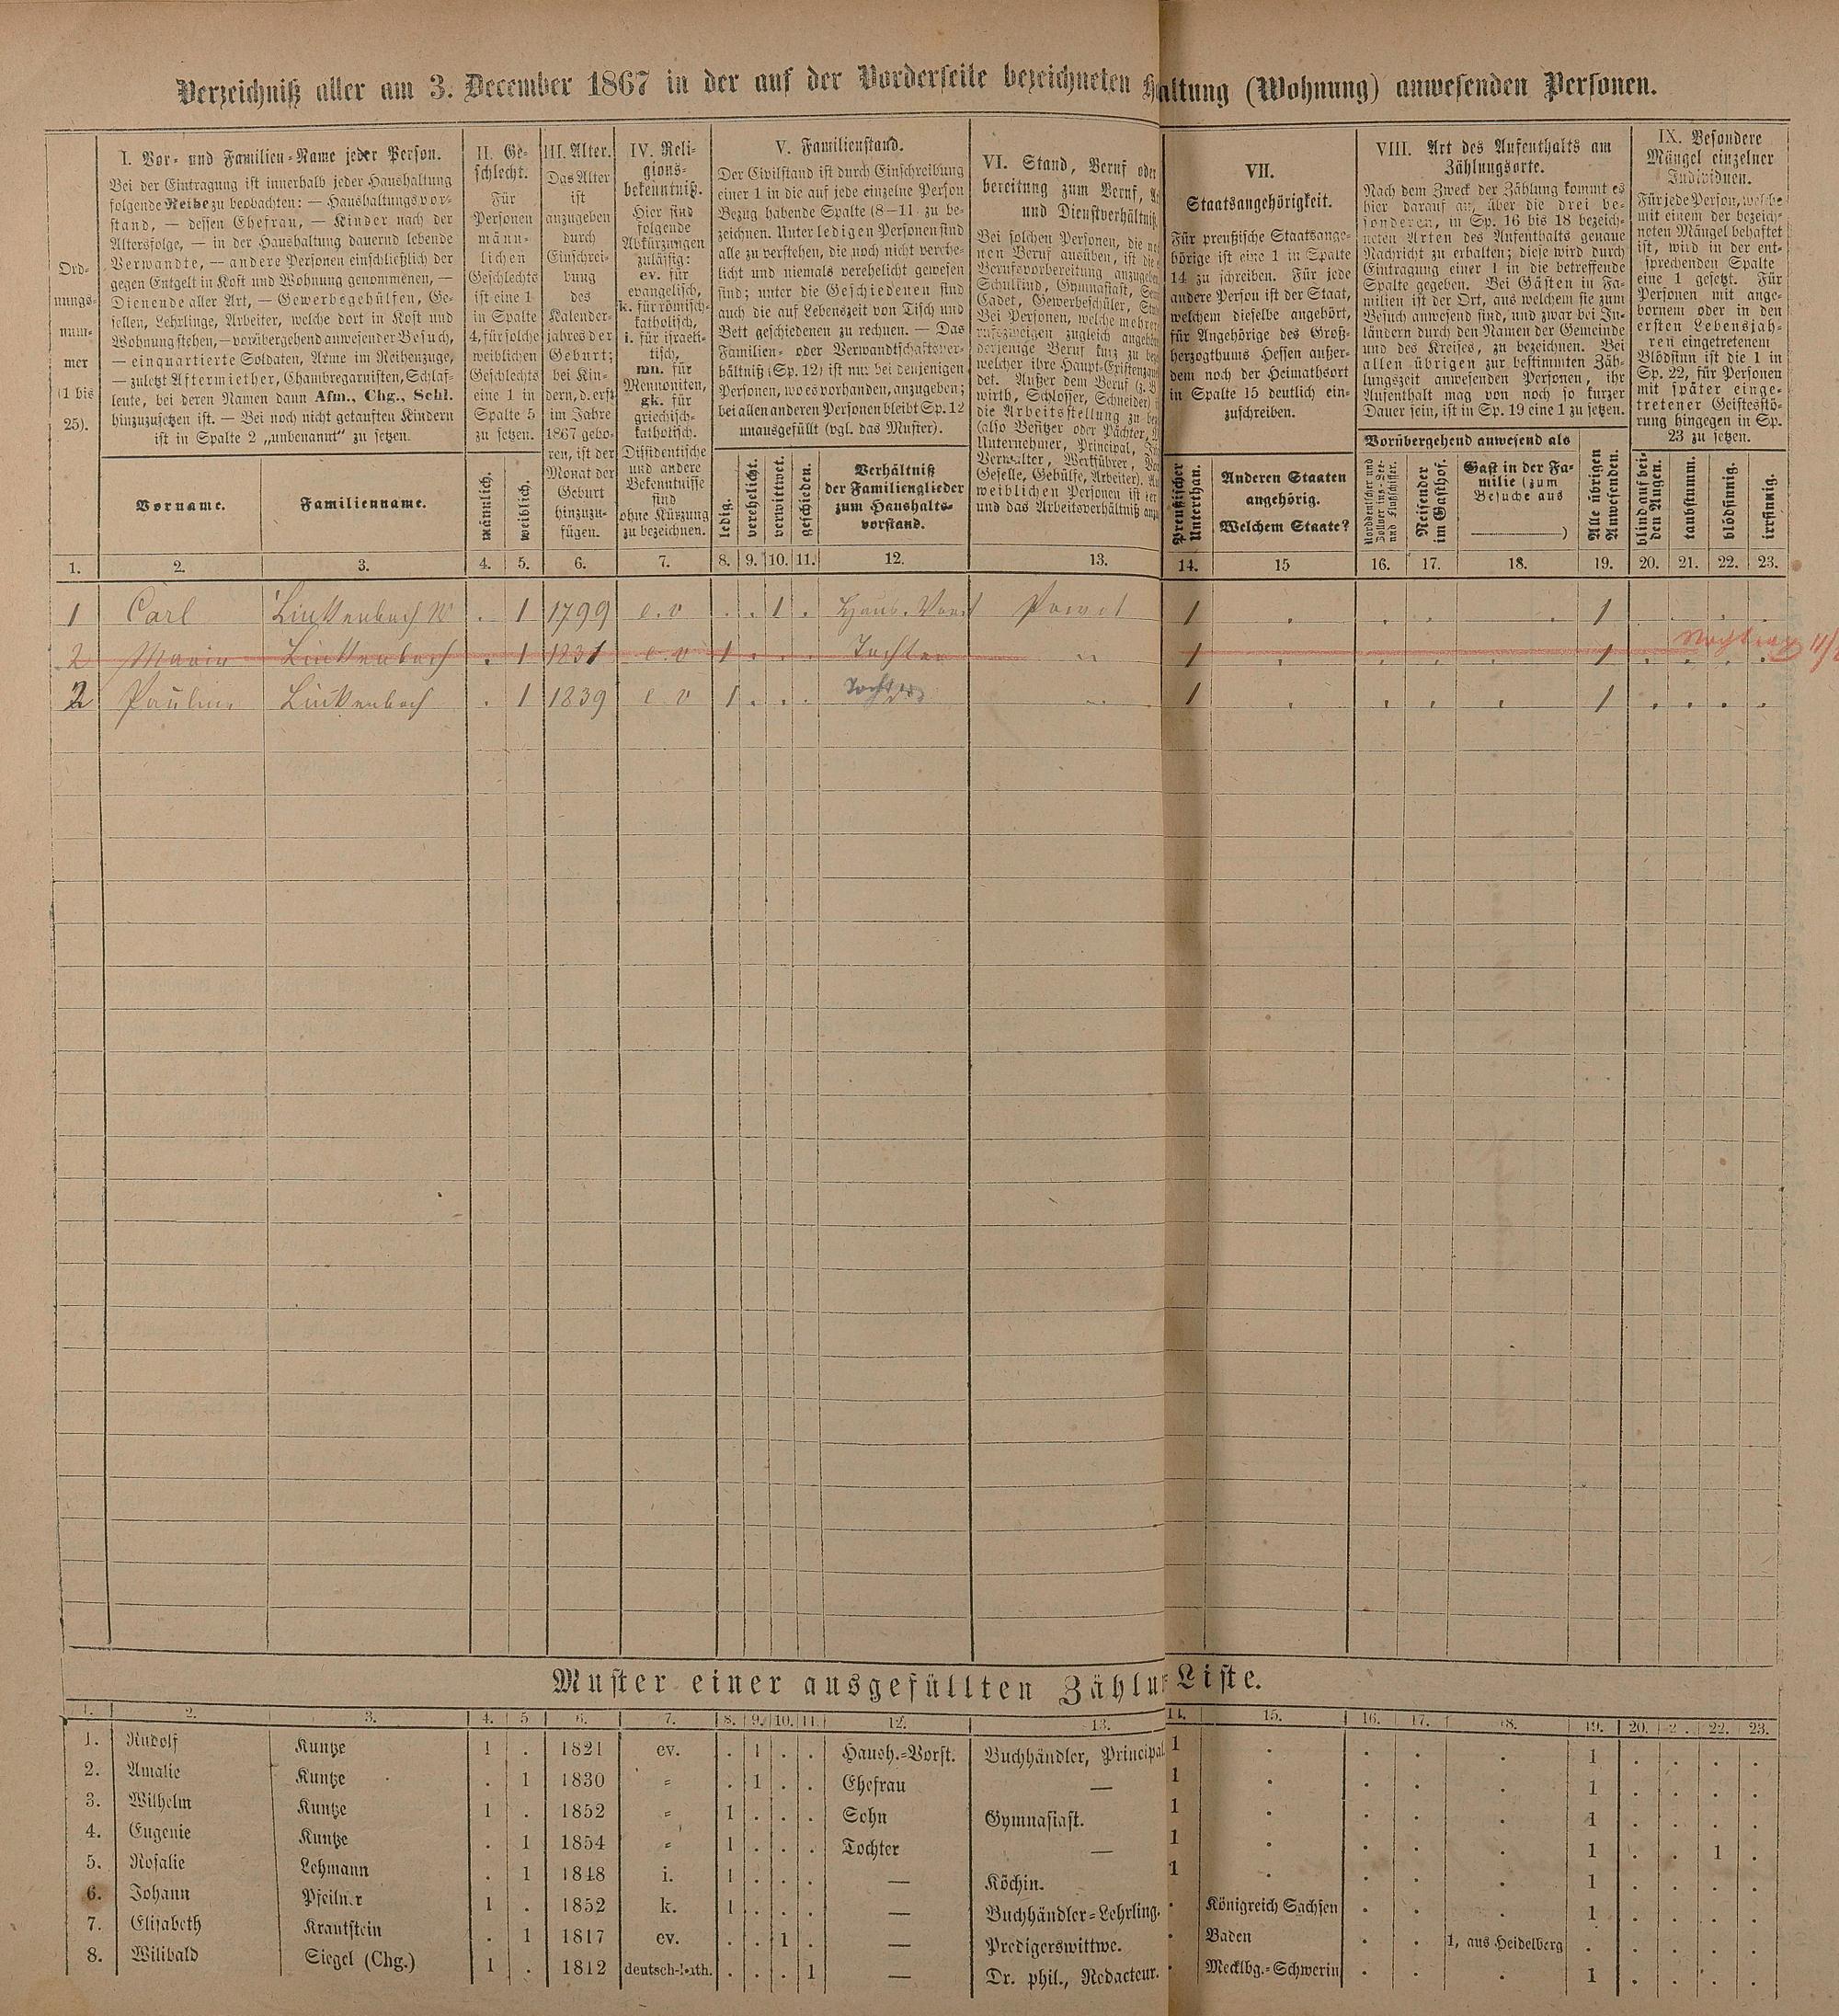 Verzeichniß aller am 3. December 1867 in der auf der Vorderseite bezeichneten Haltung (Wohnung) anwesenden Personen.
Ord-
nungs-
num-
mer
(1 bis
25).
I. Vor- und Familien-Name jeder Person.
Bei der Eintragung ist innerhalb jeder Haushaltung
folgende Reihe zu beobachten: — Haushaltungsvor-
stand, — dessen Ehefrau, — Kinder nach der
Altersfolge, — in der Haushaltung dauernd lebende
Verwandte, — andere Personen einschließlich der
gegen Entgelt in Kost und Wohnung genommenen, —
Dienende aller Art, — Gewerbegehülfen, Ge-
sellen, Lehrlinge, Arbeiter, welche dort in Kost und
Wohnung stehen, — vorübergehend anwesender Besuch,
— einquartierte Soldaten, Arme im Reihenzuge,
— zuletzt Aftermiether, Chambregarnisten, Schlaf-
leute, bei deren Namen dann Afm., Chg., Schl.
hinzuzusetzen ist. — Bei noch nicht getauften Kindern
ist in Spalte 2 „unbenannt“ zu setzen.
Vorname.
Familienname.
II. Ge-
schlecht.
Für
Personen
männ-
lichen
Geschlechts
ist eine 1
in Spalte
4, für solche
weiblichen
Geschlechts
eine 1 in
Spalte 5
zu setzen.
männlich.
weiblich.
III. Alter.
Das Alter
ist
anzugeben
durch
Einschrei-
bung
des
Kalender-
jahres der
Geburt;
bei Kin-
dern, d. erst
im Jahre
1867 gebo-
ren, ist der
Monat der
Geburt
hinzuzu-
fügen.
IV. Reli-
gions-
bekenntniß.
Hier sind
folgende
Abkürzungen
zulässig:
ev. für
evangelisch,
k. für römisch-
katholisch,
i. für israeli-
tisch,
mn. für
Mennoniten,
gk. für
griechisch-
katholisch.
Dissidentische
und andere
Bekenntnisse
sind
ohne Kürzung
zu bezeichnen.
V. Familienstand.
Der Civilstand ist durch Einschreibung
einer 1 in die auf jede einzelne Person
Bezug habende Spalte (8—11 zu be-
zeichnen. Unter ledigen Personen sind
alle zu verstehen, die noch nicht verehe-
licht und niemals verehelicht gewesen
sind; unter die Geschiedenen sind
auch die auf Lebenszeit von Tisch und
Bett geschiedenen zu rechnen. — Das
Familien- oder Verwandtschaftsver-
hältniß (Sp. 12) ist nur bei denjenigen
Personen, wo es vorhanden, anzugeben;
bei allen anderen Personen bleibt Sp. 12
unausgefüllt (vgl. das Muster).
ledig.
verehelicht.
verwittwet.
geschieden.
Verhältniß
der Familienglieder
zum Haushalts-
vorstand.
VI. Stand, Beruf oder
bereitung zum Beruf,
und Dienstverhältniß
Bei solchen Personen, die
nen Beruf ausüben, ist die
Berufsvorbereitung anzugeben
Schulkind, Gymnasiast,
Cadet, Gewerbeschüler,
Bei Personen, welche mehren
rufszweigen zugleich angehö
derjenige Beruf kurz zu be
welcher ihre Haupt-Existenz
det. Außer dem Beruf (z. B.
wirth, Schlosser, Schneider)
die Arbeitsstellung zu be
(also Besitzer oder Pächter,
Unternehmer, Principal,
Verwalter, Werkführer,
Geselle, Gehülfe, Arbeiter).
weiblichen Personen ist
und das Arbeitsverhältniß
VII.
Staatsangehörigkeit.
Für preußische Staatsange-
hörige ist eine 1 in Spalte
14 zu schreiben. Für jede
andere Person ist der Staat,
welchem dieselbe angehört,
für Angehörige des Groß-
herzogthums Hessen außer-
dem noch der Heimathsort
in Spalte 15 deutlich ein-
zuschreiben.
Preußischer
Unterthan.
Anderen Staaten
angehörig.
Welchem Staate?
VIII. Art des Aufenthalts am
Zählungsorte.
Nach dem Zweck der Zählung kommt es
hier darauf an, über die drei be-
sonderen, in Sp. 16 bis 18 bezeich-
neten Arten des Aufenthalts genaue
Nachricht zu erhalten; diese wird durch
Eintragung einer 1 in die betreffende
Spalte gegeben. Bei Gästen in Fa-
milien ist der Ort, aus welchem sie zum
Besuch anwesend sind, und zwar bei In-
ländern durch den Namen der Gemeinde
und des Kreises, zu bezeichnen. Bei
allen übrigen zur bestimmten Zäh-
lungszeit anwesenden Personen, ihr
Aufenthalt mag von noch so kurzer
Dauer sein, ist in Sp. 19 eine 1 zu setzen.
Vorübergehend anwesend als
Norddeutscher und
Zollver ins-See-
und Flußschiffer.
Reisender
im Gasthof.
Gast in der Fa-
milie (zum
Besuche aus
)
Alle übrigen
Anwesenden.
IX. Besondere
Mängel einzelner
Individuen.
Für jede Person, welche
mit einem der bezeich-
neten Mängel behaftet
ist, wird in der ent-
sprechenden Spalte
eine 1 gesetzt. Für
Personen mit ange-
bornem oder in den
ersten Lebensjah-
ren eingetretenem
Blödsinn ist die 1 in
Sp. 22, für Personen
mit später einge-
tretener Geistesstö-
rung hingegen in Sp.
23 zu setzen.
blind auf bei-
den Augen.
taubstumm.
blödsinnig.
irrsinnig.
1. 2. 3. 4. 5. 6. 7. 8. 9. 10. 11. 12. 13. 14. 15 16. 17. 18. 19. 20. 21. 22. 23.
1 Carl Linkenbach W . 1 1799 e. v . . 1 . Haus. Vorst 1 . . . . 1
2 Maria Linkenbach . 1 1831 e. v 1 . . . Tochter " 1 . . . . 1 . . . .
2 Pauline Linkenbach . 1 1839 e v 1 . . . Tochter 1 . . . . 1 . . . .
Muster einer ausgefüllten Zählu Liste.
1. 2. 3. 4. 5 6. 7. 8. 9. 10. 11. 12. 13. 14. 15. 16. 17. 18. 19. 20. 2 . 22. 23.
1. Rudolf Kuntze 1 . 1821 ev. . 1 . . Haush.=Vorst. Buchhändler, Principal 1 . . . . 1 . . . .
2. Amalie Kuntze . 1 1830 " . 1 . . Ehefrau — 1 . . . . 1 . . . .
3. Wilhelm Kuntze 1 . 1852 " 1 . . . Sohn Gymnasiast. 1 . . . . 1 . . . .
4. Eugenie Kuntze . 1 1854 " 1 . . . Tochter — 1 . . . . 1 . . 1 .
5. Rosalie Lehmann . 1 1848 i. 1 . . . — Köchin. 1 . . . . 1 . . . .
6. Johann Pfeilner 1 . 1852 k. 1 . . . — Buchhändler=Lehrling. . Königreich Sachsen . . . 1 . . . .
7. Elisabeth Krautstein . 1 1817 ev. . . 1 . — Predigerswittwe. . Baden . . 1, aus Heidelberg . . . . .
8. Wilibald Siegel (Chg.) 1 . 1812 deutsch-kath. . . . 1 — Dr. phil., Redacteur. . Mecklbg.=Schwerin . . . 1 . . . .